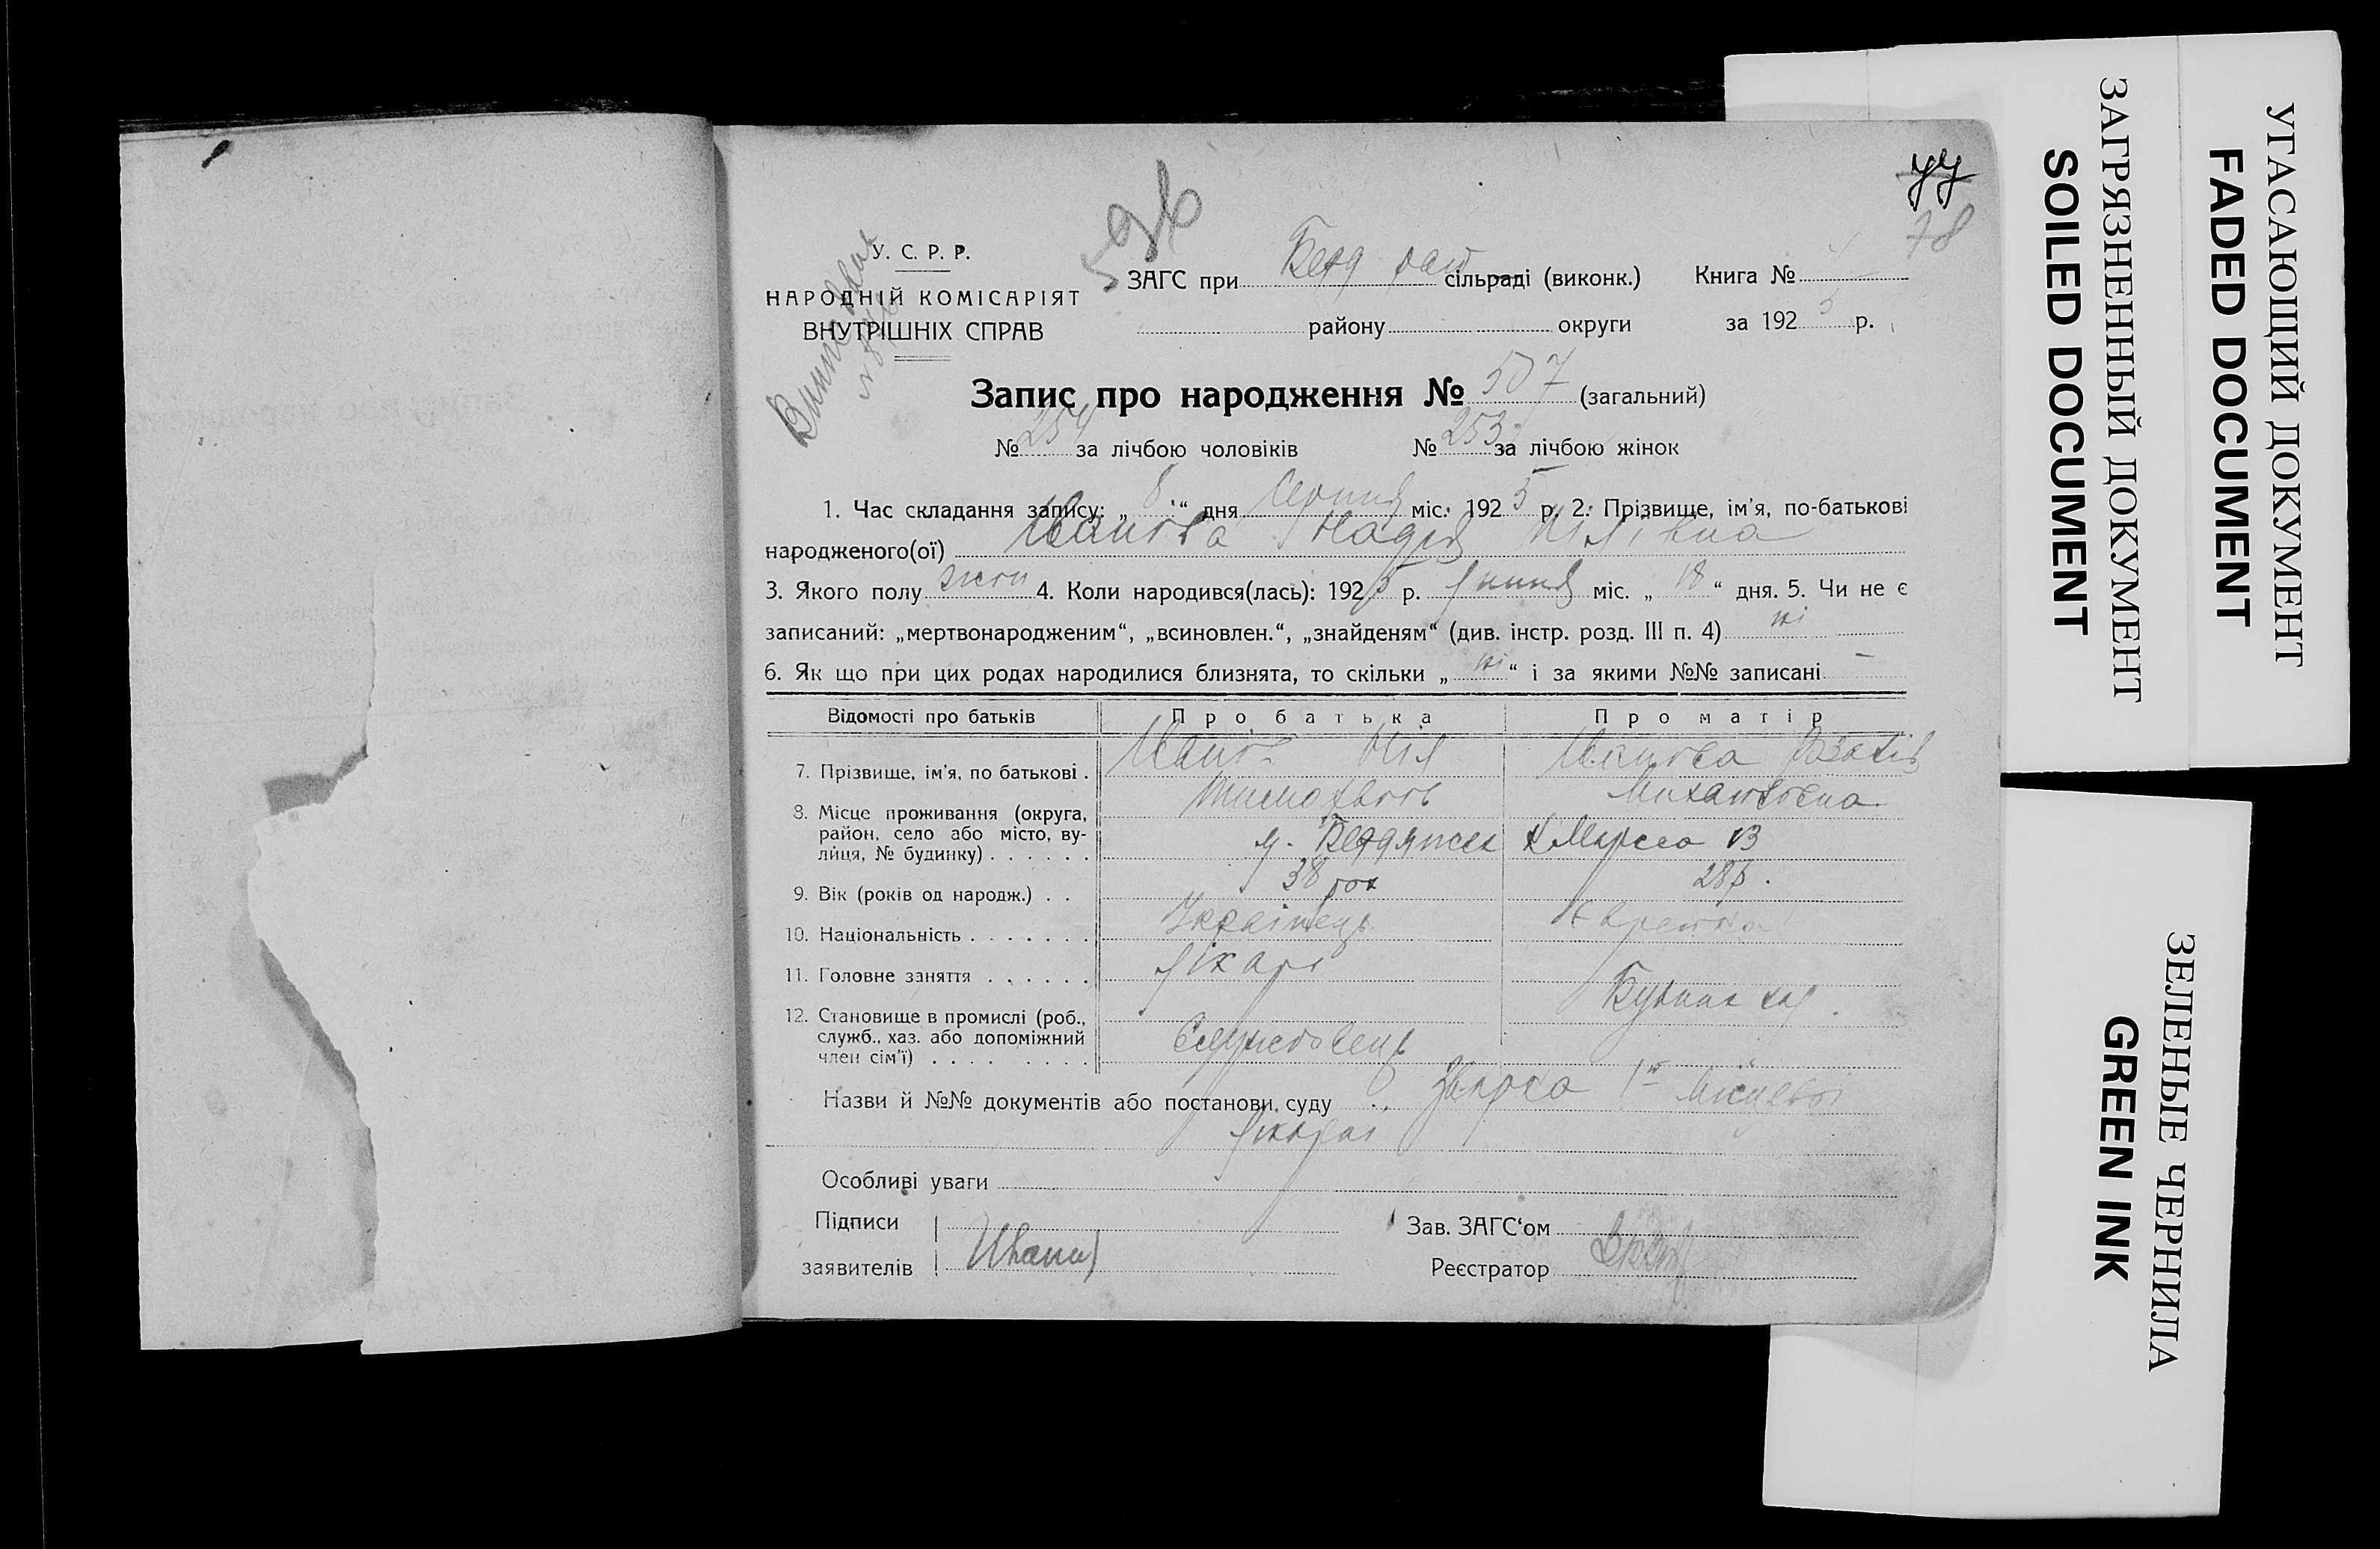 77
78
596
У. С. Р. Р.
НАРОДНІЙ КОМІСАРІЯТ
ВНУТРІШНІХ СПРАВ
ЗАГС при Берд рай сільраді (виконк.) Книга №
району округи за 192 5 р.
Запис про народження № 507 (загальний)
№ 254 за лічбою чоловіків № 253 за лічбою жінок
1. Час складання запису: „ 8 “ дня Серпня міс. 192 5 р. 2. Прізвище, ім'я, по-батькові
народженого(ої) Иванова Надія Нілівна
3. Якого полу жіноч 4. Коли народився(лась): 192 5 р. Липня міс. „ 18 “ дня. 5. Чи не є
записаний: „мертвонародженим“, „всиновлен.“, „знайденям“ (див. інстр. розд. III п. 4) ні
6. Як що при цих родах народилися близнята, то скільки „ ні “ і за якими №№ записані —
Відомості про батьків Про батька Про матір
7. Прізвище, ім'я, по батькові . Иванов Ніл Иванова
Тимофієв Михайловна
8. Місце проживання (округа,
район, село або місто, ву-
лиця, № будинку) . . . . . . м. Бердянськ К Маркса 13
9. Вік (років од народж.) . . 38 рок 28 р.
10. Національність . . . . . . . Українець Єврейка
11. Головне заняття . . . . . . Лікарь
12. Становище в промислі (роб.,
служб., хаз. або допоміжний
член сім'ї) . . . . . . . . Службовець
Назви й №№ документів або постанови суду 1ї місцевої
лікарні
Особливі уваги
Підписи
заявителів Иванов
Зав. ЗАГС‘ом
Реєстратор
УГАСАЮЩИЙ ДОКУМЕНТ
FADED DOCUMENT
ЗАГРЯЗНЕННЫЙ ДОКУМЕНТ
SOILED DOCUMENT
ЗЕЛЕНЫЕ ЧЕРНИЛА
GREEN INK